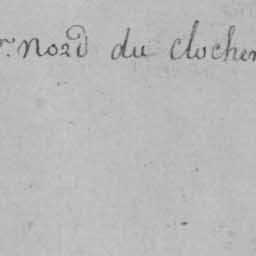 r. Nord du clocher